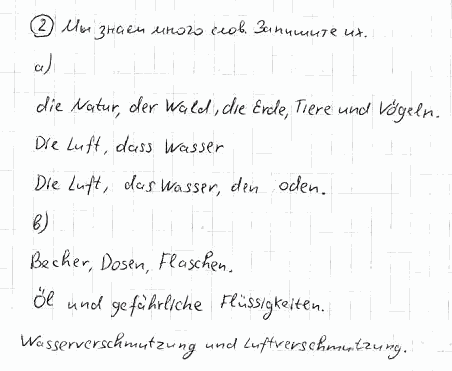 ② Мы знаем много слов. Запишите их.
а)
die Natur, der Wald, die Erde, Tiere und Vögeln.
Die Luft, dass Wasser
Die Luft, das Wasser, den oden.
в)
Becher, Dosen, Flaschen.
Öl und gefährliche Flüssigkeiten.
Wasserverschmutzung und Luftverschmutzung.